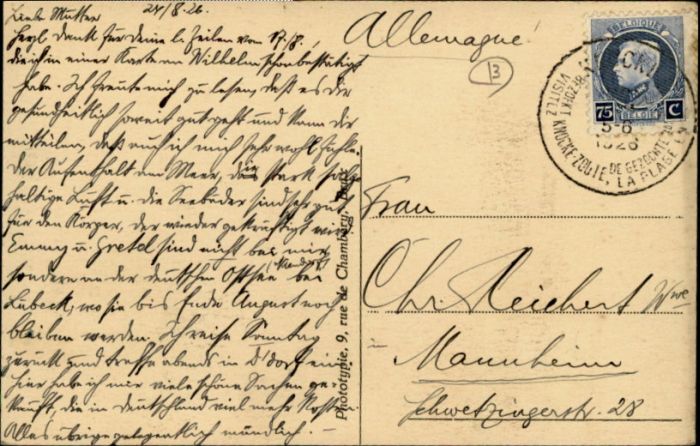 24/8.26.
Liebe Mutter
Herzl. Dank für deine l. Zeilen vom 17/8.
die ich in einer Karte an Wilhelm schon bestätigt
habe. Ich freute mich zu lesen, daß es dir
gesundheitlich soweit gut geht und kann dir
mitteilen, daß auch ich mich sehr wohl fühle.
Der Aufenthalt am Meer, die stark salz-
haltige Luft u. die Seebäder sind sehr gut
für den Körper, der wieder gekräftigt wird
Emmy u. Gretel sind nicht bei mir
sondern an der deutschen Ostsee bei
Lübeck, wo sie bis Ende August noch
bleiben werden. Ich reise Sonntag
zurück und treffe abends in D'dorf ein
Hier habe ich mir viele schöne Sachen ge-
kauft, die in Deutschland viel mehr kosten
Alles übrige gelegentlich mündlich. –
Phototypie, 9, rue de Chambéry,
Allemagne
13
BELGIQUE
75 C
BELGIË
1926
VISITEZ KNOCKE-ZOUTE,
LA PLAGE
DE GEZOCHTE
Frau
Chr. Reichert Wwe
in
Mannheim
Schwetzingerstr. 28